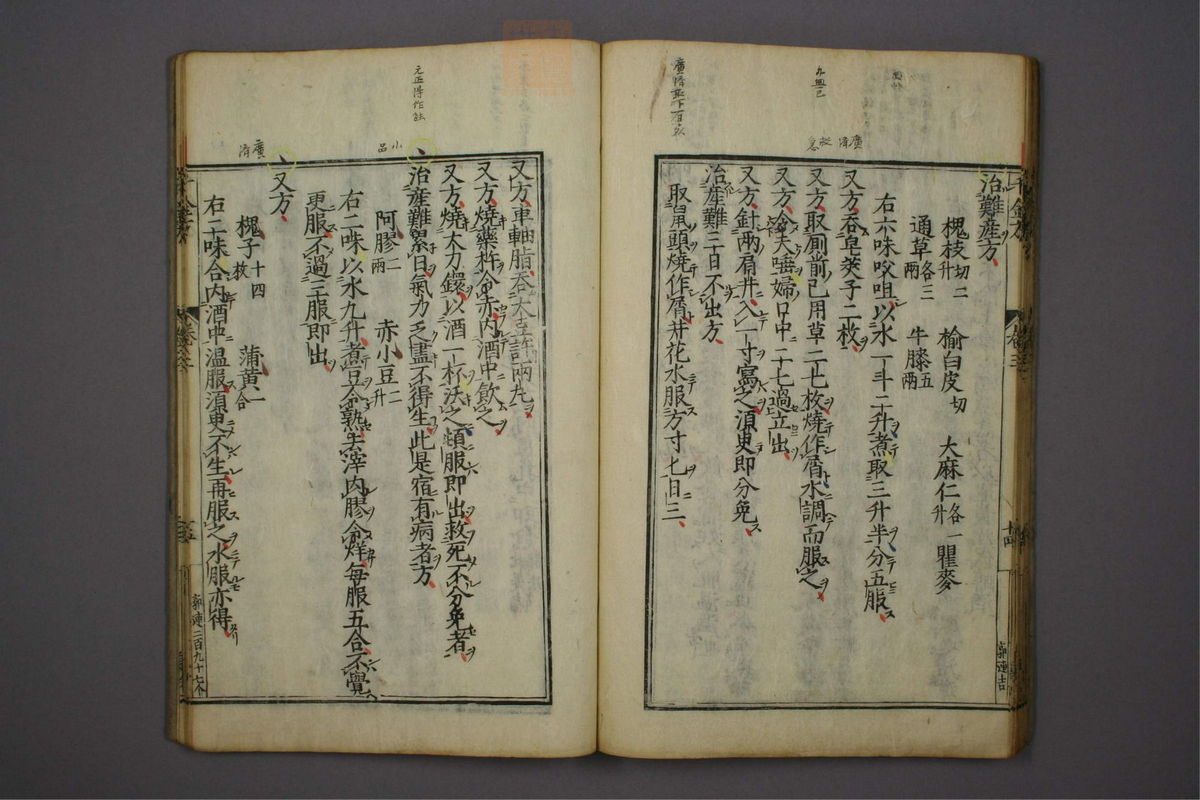 治難産方
槐枝切二升 榆白皮切 大麻仁各一升 瞿麥
通草各三兩 牛膝五兩
右六味㕮咀以水一斗二升煮取三升半分五服
又方吞皂莢子二枚
又方取廁前已用草二七枚燒作屑水調而服之
又方令夫唾婦口中二七過立出
又方針兩肩井入一寸寫之須臾即分免
治産難三日不出方
取鼠頭燒作屑井花水服方寸匕日三
又方車軸脂吞大豆許兩丸
又方燒藥杵令赤內酒中飲之
又方燒大刀鐶以酒一杯沃之頓服即出救死不分免者
治産難累日氣力乏盡不得生此是宿有病者方
阿膠二兩 赤小豆二升
右二味以水九升煮豆令熟去滓內膠令烊每服五合不覺
更服不過三服即出
又方
槐子十四枚 蒲黃一合
右二味合內酒中溫服須臾不生再服之水服亦得